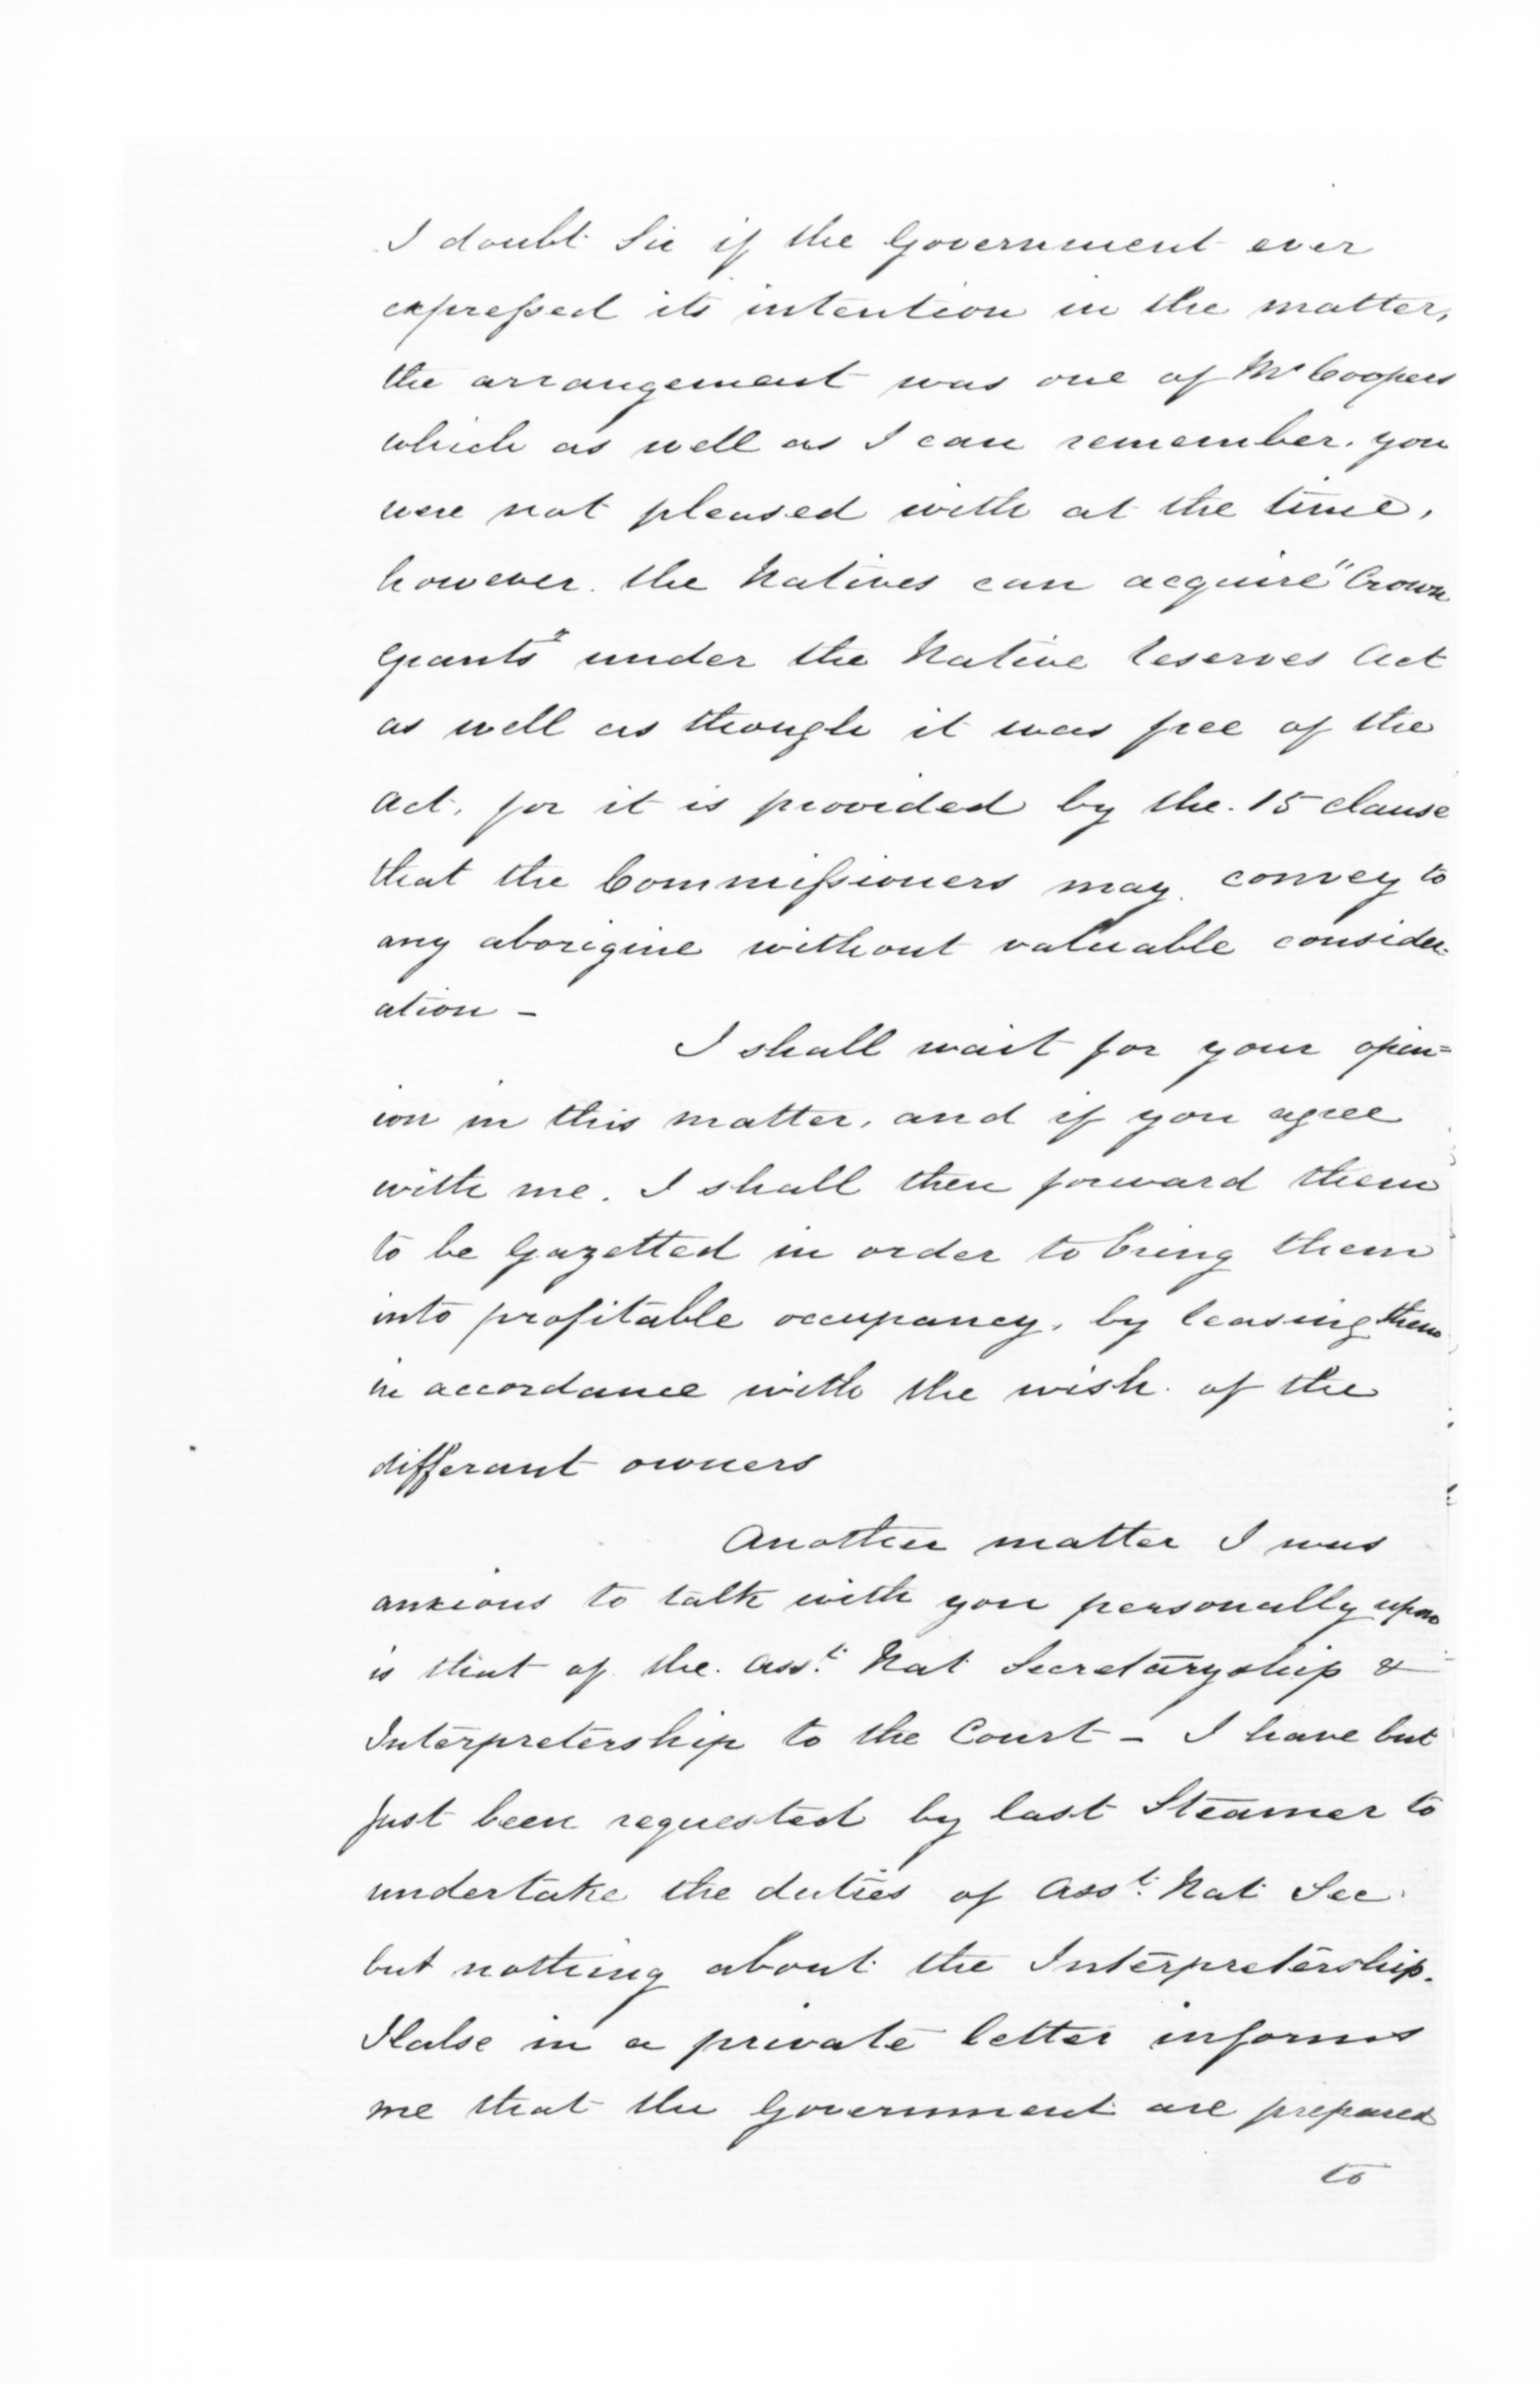 I doubt Sir if the Government ever
expressed its intention in the matter,
the arrangement was one of Mr Coopers
which as well as I can remember. you
were not pleased with at the time,
however. the Natives can acquire "Crown
Grants" under the Native Reserves Act
as well as though it was free of the
Act, for it is provided by the. 15 clause
that the Commissioners may. convey to
any aborigine without valuable consider-
ation -
I shall wait for your opin=
ion in this matter, and if you agree
with me. I shall then forward them
to be Gazetted in order to bring them
into profitable occupancy, by leasing them
in accordance with the wish. of the
differant owners
Another matter I was
anxious to talk with you personally upon
is that of the. Asst. Nat Secretaryship &
Interpretership to the Court - I have but
just been requested by last Steamer to
undertake the duties of Asst. Nat Sec.
but nothing about the Interpretership.
Halse in a private letter informs
me that the Government are prepared
to